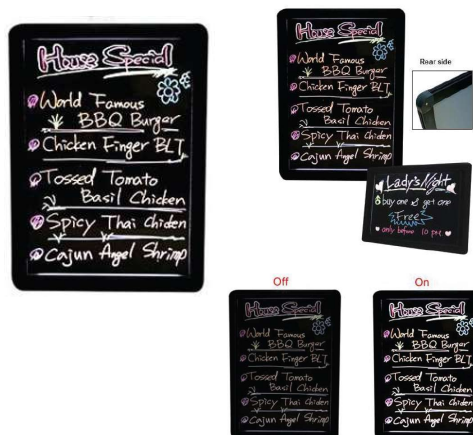 House Special
World Famous
BBQ Burger
Chicken Finger BLT
Tossed Tomato
Basil Chicken
Spicy Thai Chicken
Cajun Angel Shrimp
House Special
World Famous
BBQ Burger
Chicken Finger BLT
Tossed Tomato
Basil Chicken
Spicy Thai Chicken
Cajun Angel Shrimp
Rear side
Lady's Night
buy one & get one
Free
only before 10 p.m.
Off
House Special
World Famous
BBQ Burger
Chicken Finger BLT
Tossed Tomato
Basil Chicken
Spicy Thai Chicken
Cajun Angel Shrimp
On
House Special
World Famous
BBQ Burger
Chicken Finger BLT
Tossed Tomato
Basil Chicken
Spicy Thai Chicken
Cajun Angel Shrimp